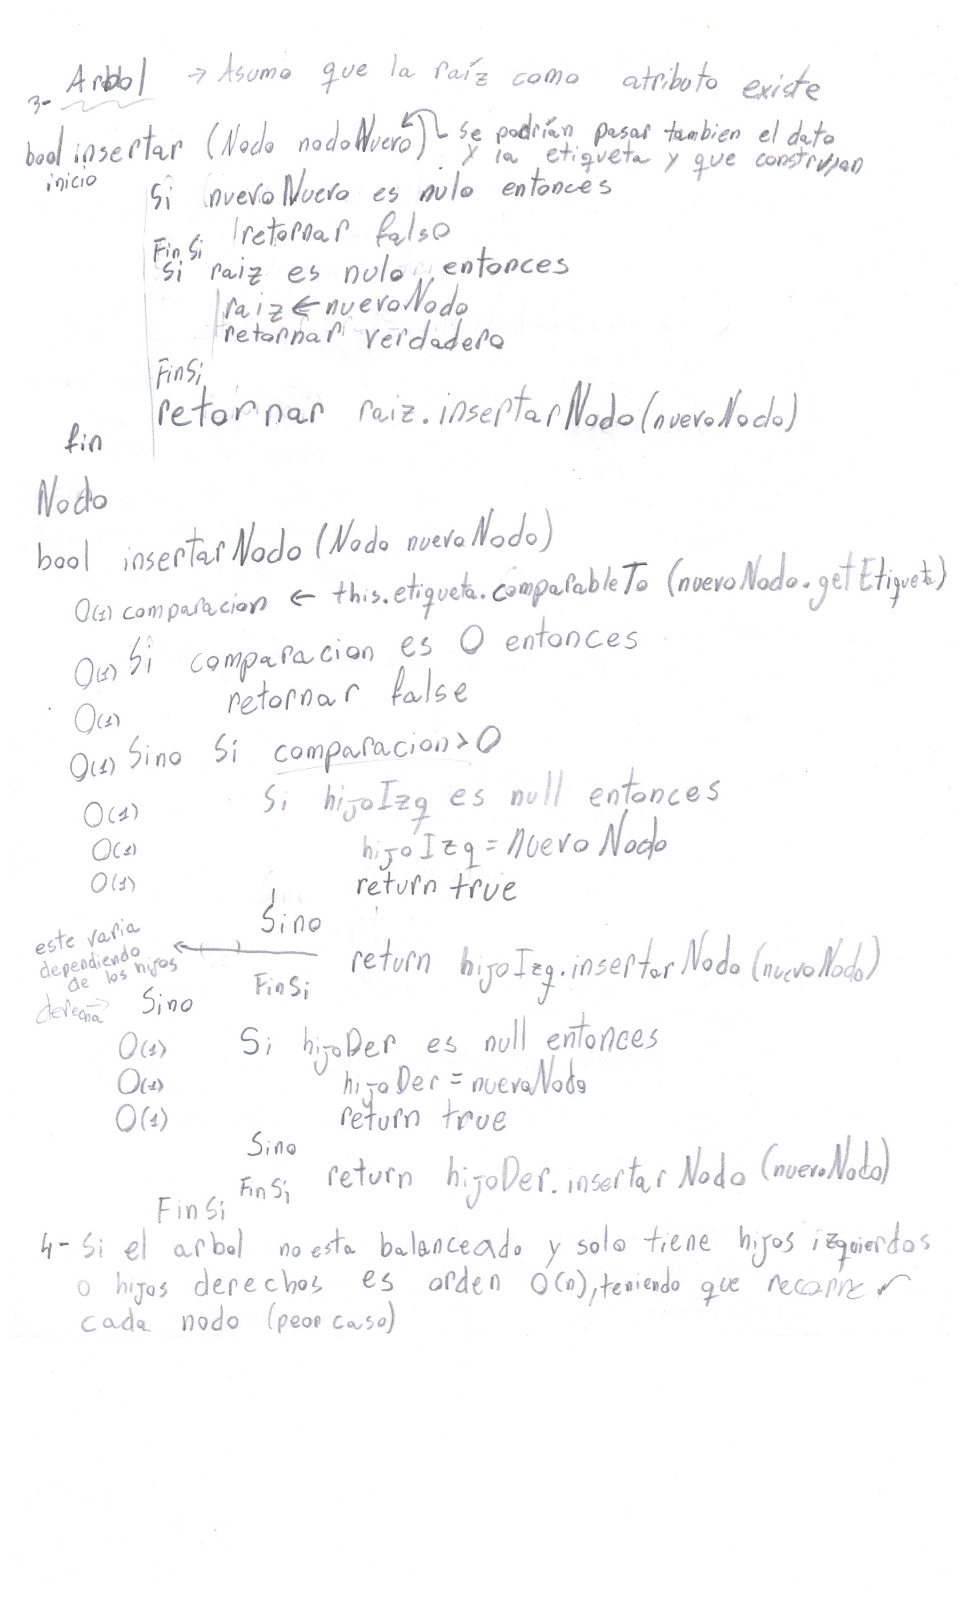 3- Arbol → Asumo que la raíz como atributo existe
bool insertar (Nodo nodoNuevo) se podrían pasar tambien el dato
y la etiqueta y que construyan
inicio
Si nuevoNuevo es nulo entonces
retornar falso
Fin Si
Si raiz es nulo entonces
raiz ← nuevoNodo
retornar verdadero
FinSi
retornar raiz.insertarNodo(nuevoNodo)
fin
Nodo
bool insertarNodo (Nodo nuevoNodo)
O(1) comparacion ← this.etiqueta.comparableTo (nuevoNodo.getEtiqueta)
O(1) Si comparacion es 0 entonces
O(1) retornar false
O(1) Sino Si comparacion > 0
O(1) Si hijoIzq es null entonces
O(1) hijoIzq = nuevoNodo
O(1) return true
Sino
este varia
dependiendo
de los hijos
return hijoIzq.insertarNodo (nuevoNodo)
FinSi
derecha → Sino
O(1) Si hijoDer es null entonces
O(1) hijoDer = nuevoNodo
O(1) return true
Sino
return hijoDer.insertarNodo (nuevoNodo)
FinSi
FinSi
4- Si el arbol no esta balanceado y solo tiene hijos izquierdos
o hijos derechos es orden O(n), teniendo que recorrer
cada nodo (peor caso)